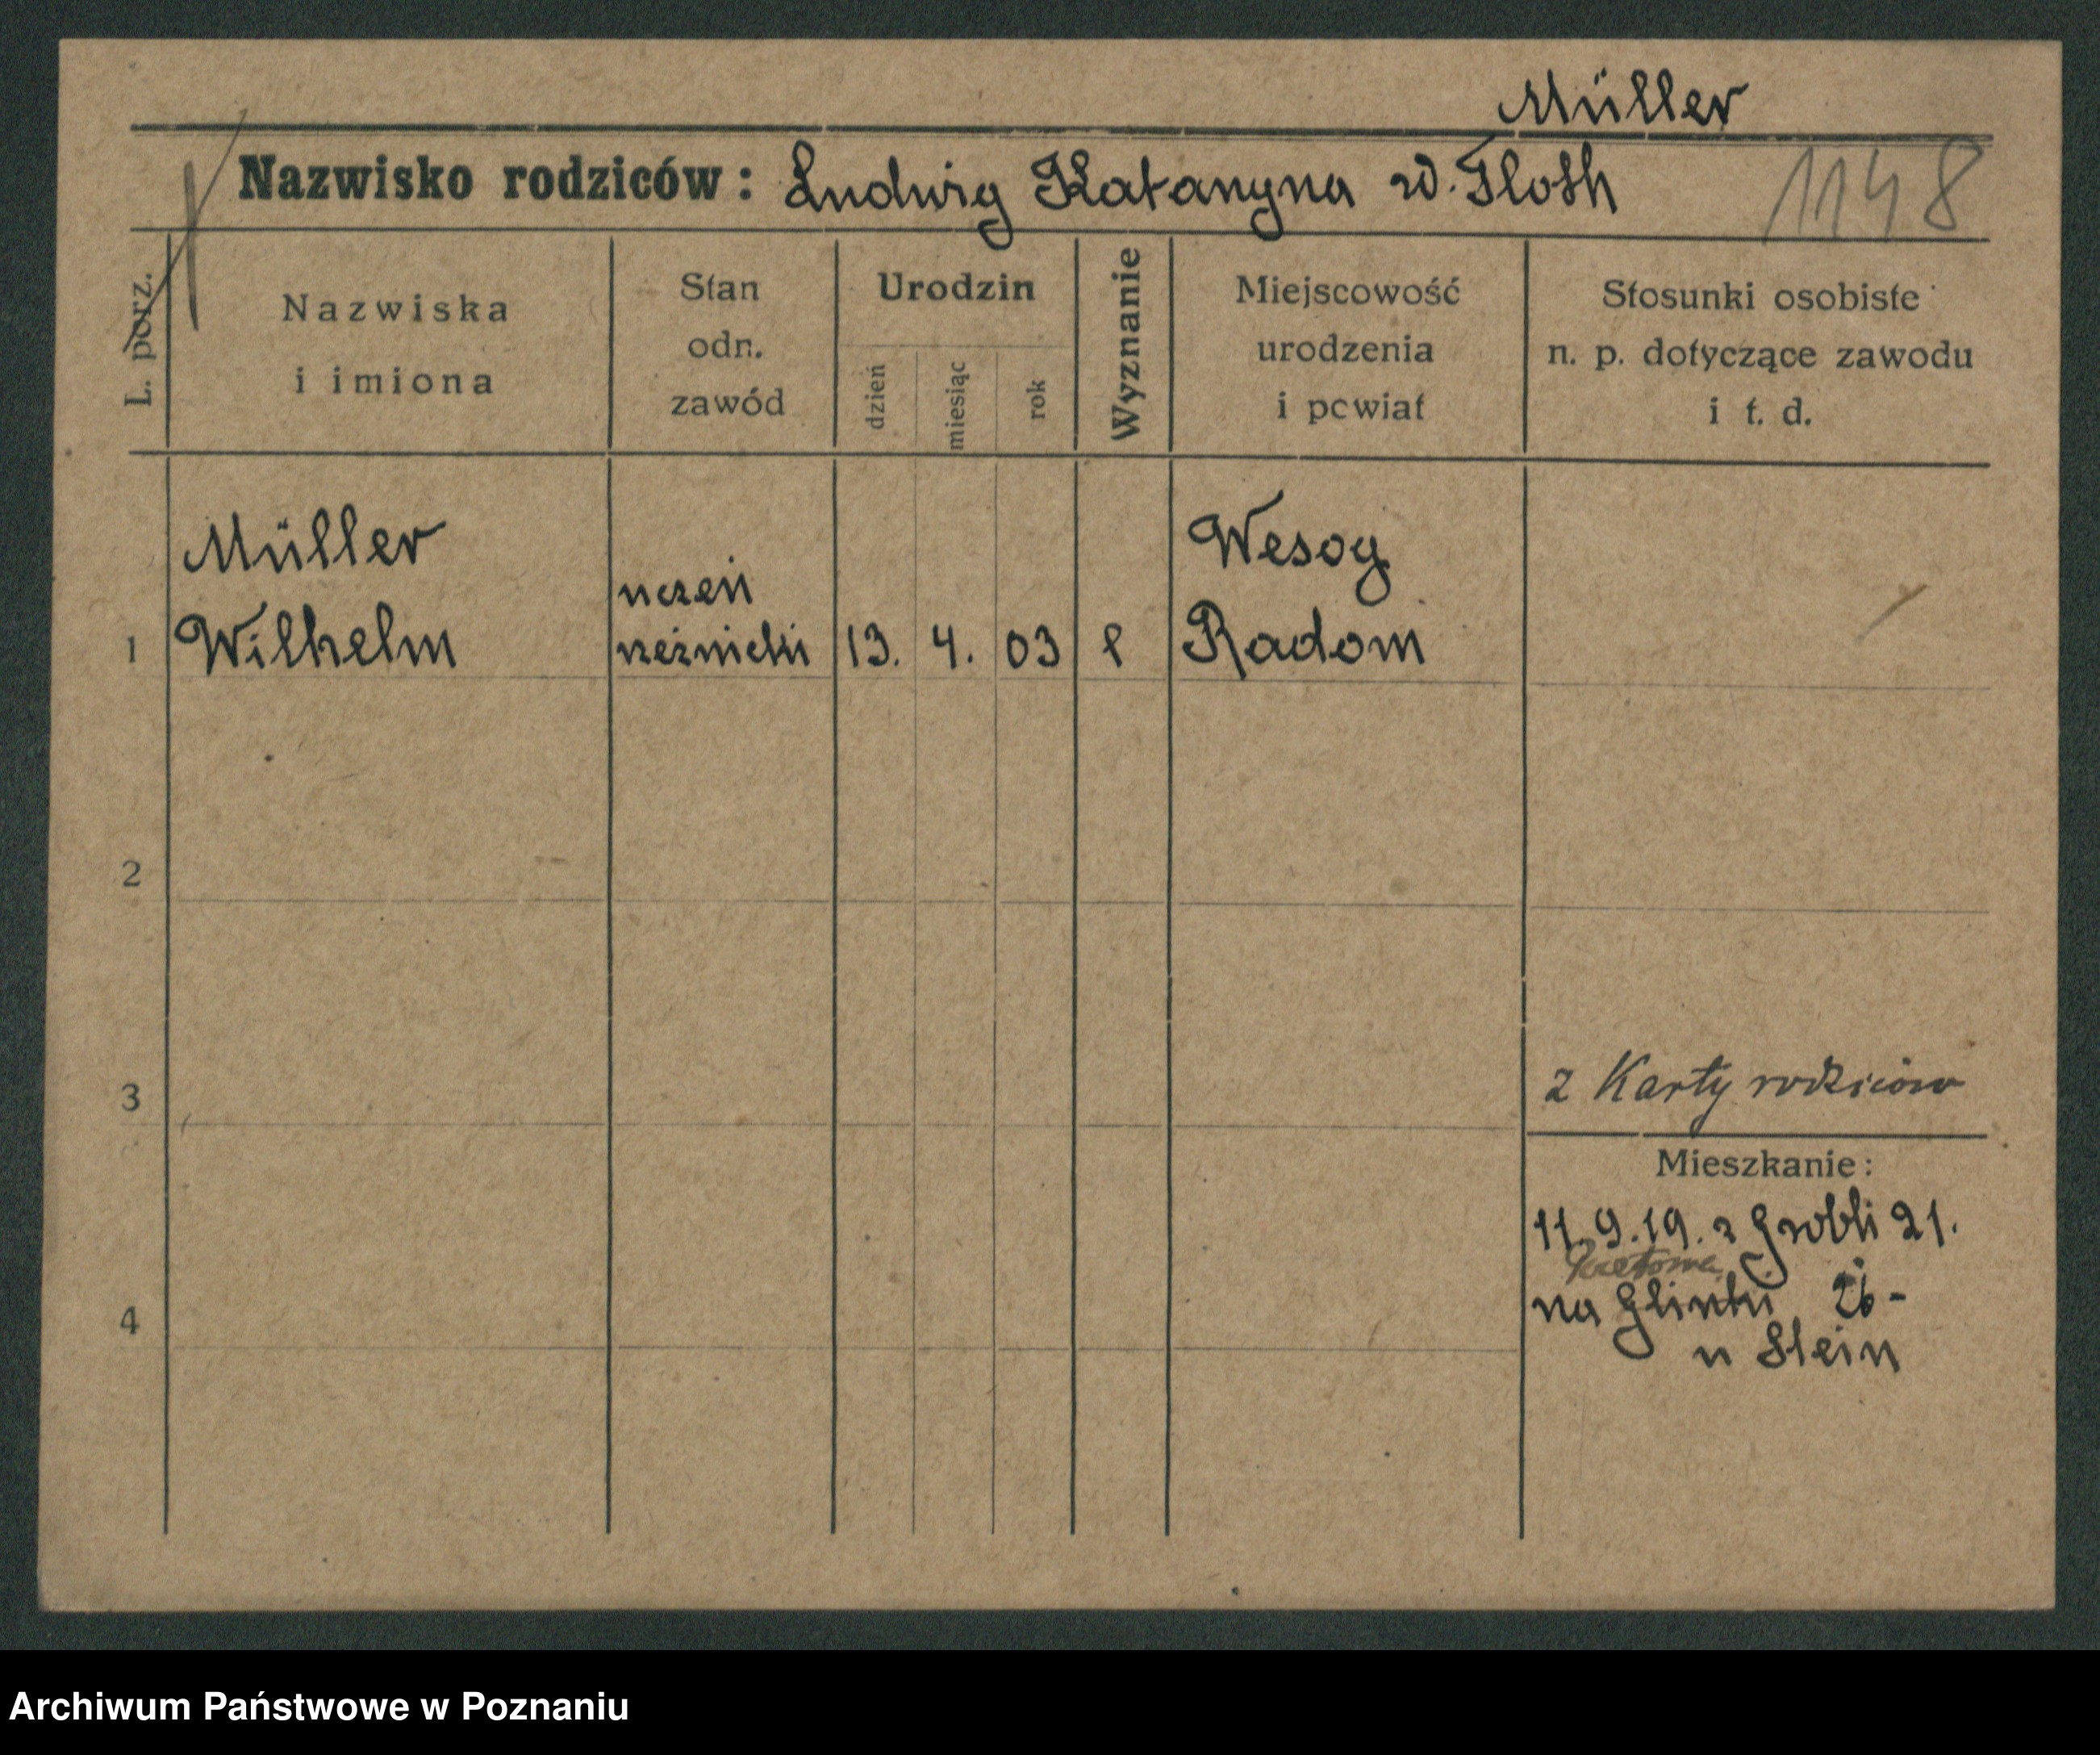 Müller
Nazwisko rodziców: Ludwig Katarzyna w. Floth
1148
L. porz.
Nazwiska
i imiona
Stan
odn.
zawód
Urodzin
dzień
miesiąc
rok
Wyznanie
Miejscowość
urodzenia
i powiat
Stosunki osobiste
n. p. dotyczące zawodu
i t. d.
Müller
uczeń
Wesog
1 Wilhelm rzeźnicki 13. 4. 03 Radom
2
3
z Karty rodziców
Mieszkanie:
11.9.19. z Grobli 21.
4
na Glinki 26-
u Stein
Archiwum Państwowe w Poznaniu